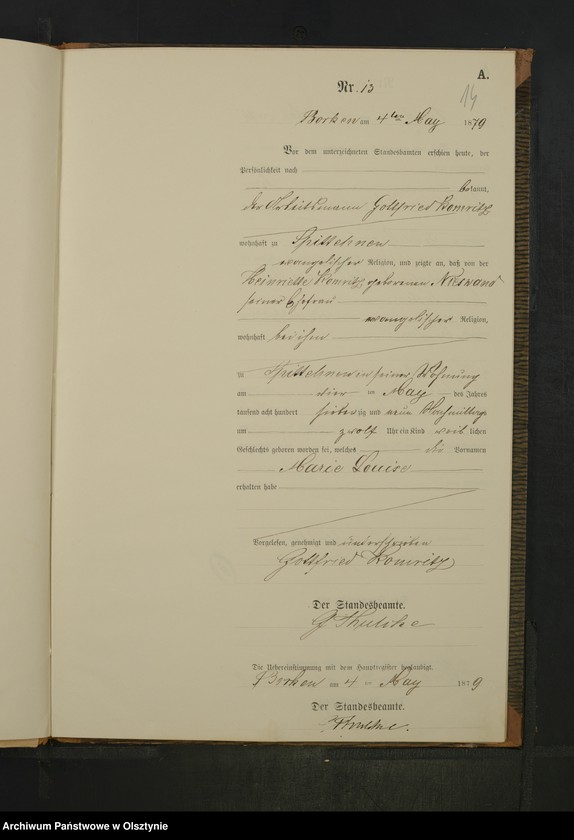 A.
14
Nr. 13
Borken am 4ten May 1879
Vor dem unterzeichneten Standesbeamten erschien heute, der
Persönlichkeit nach
bekannt,
der Arbeitsmann Gottfried Komritz
wohnhaft zu Spittehnen
evangelischer Religion, und zeigte an, daß von der
Heinriette Komritz geborenen
seiner Ehefrau
evangelischer Religion,
wohnhaft bei ihm
zu Spittehnen in seiner Wohnung
am vier ten May des Jahres
tausend acht hundert siebenzig und neun Nachmittags
um zwölf Uhr ein Kind weiblichen
Geschlechts geboren worden sei, welches die Vornamen
Marie Louise
erhalten habe
Vorgelesen, genehmigt und unterschrieben
Gottfried Komritz
Der Standesbeamte.
Die Uebereinstimmung mit dem Hauptregister beglaubigt.
Borken am 4 ten May 1879
Der Standesbeamte.
Archiwum Państwowe w Olsztynie